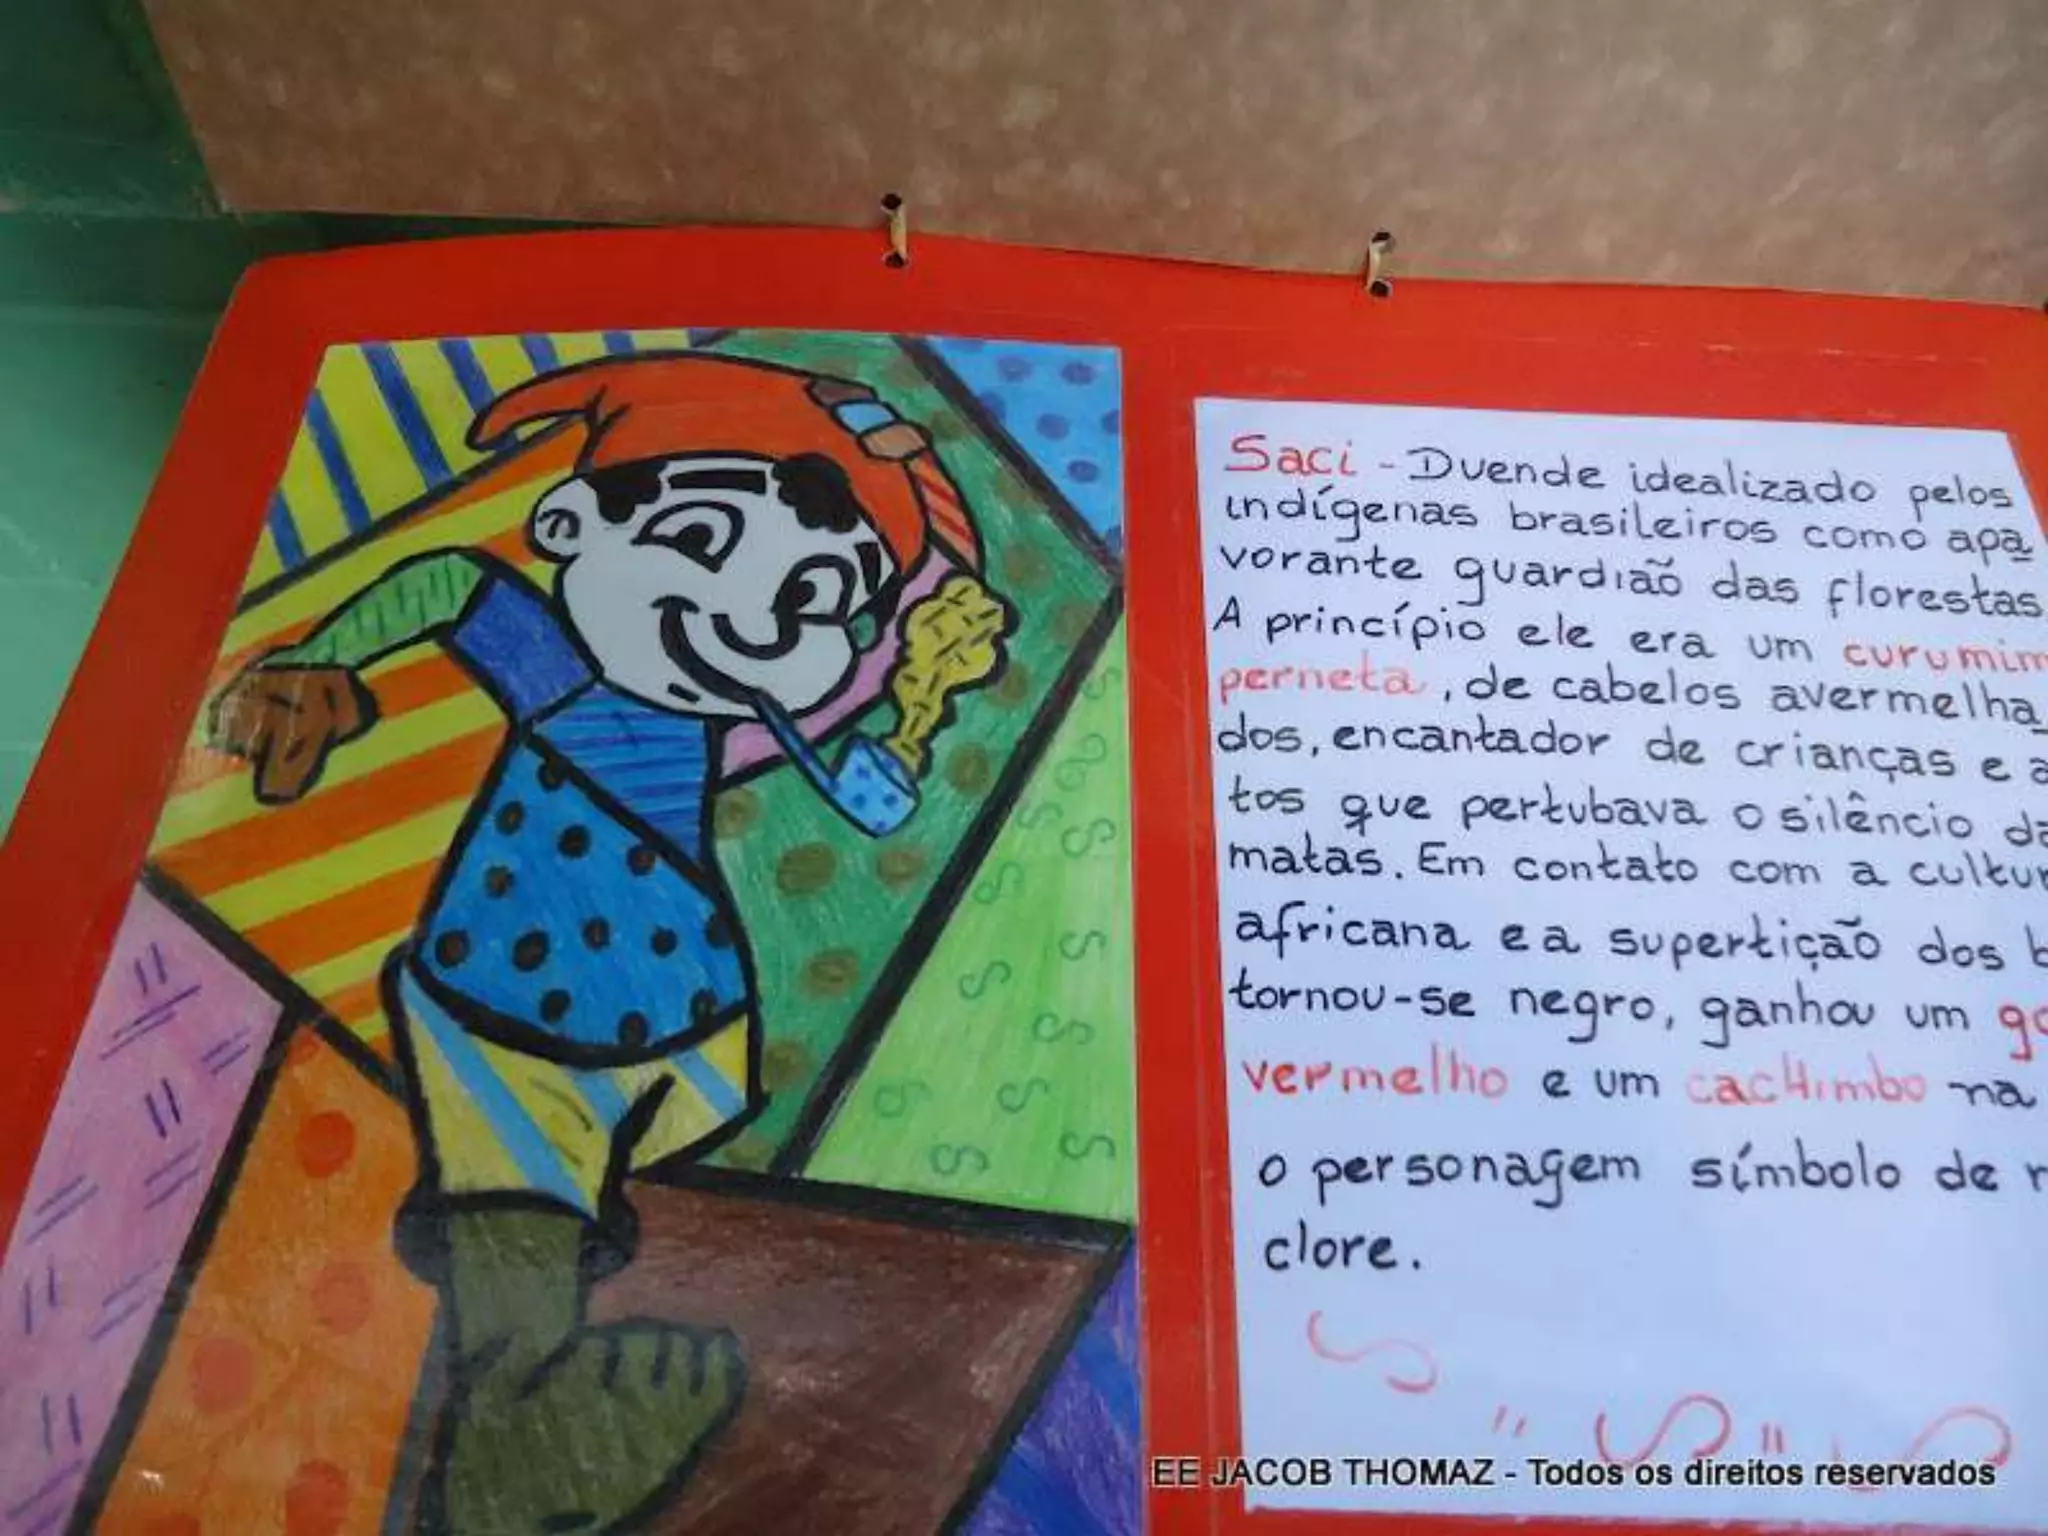 Saci - Duende idealizado pelos
indígenas brasileiros como apa
vorante guardião das florestas
A princípio ele era um curumim
perneta, de cabelos avermelha
dos, encantador de crianças e a
tos que pertubava o silêncio da
matas. Em contato com a cultur
africana e a supertição dos b
tornou-se negro, ganhou um go
vermelho e um cacHimbo na
o personagem símbolo de n
clore.
EE JACOB THOMAZ - Todos os direitos reservados